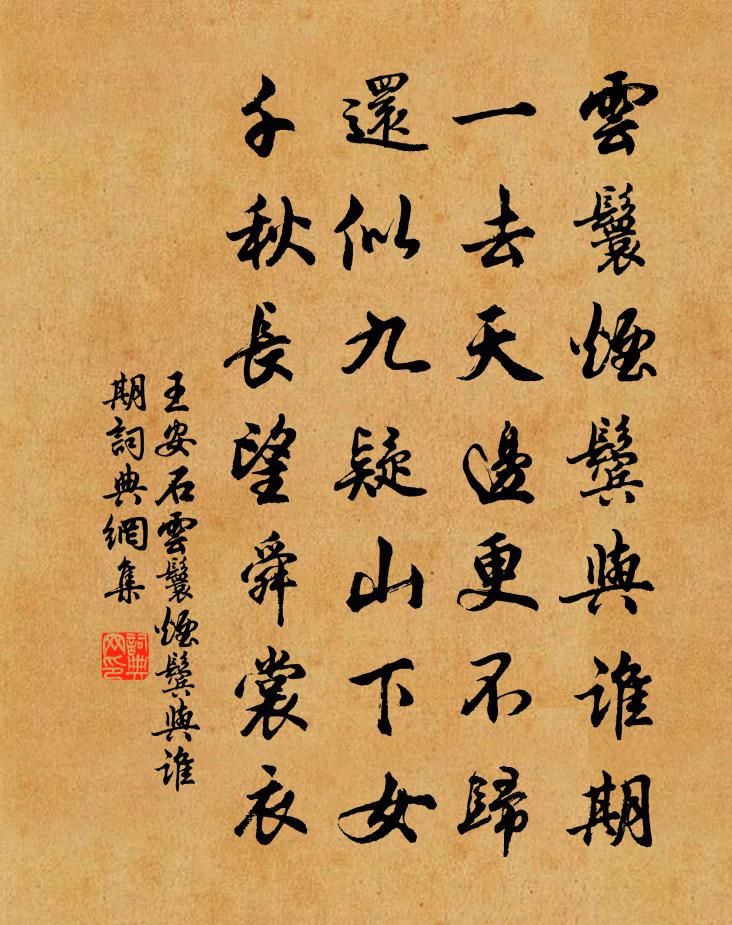 雲鬟煙鬢與誰期
一去天邊更不歸
還似九疑山下女
千秋長望舜裳衣
王安石雲鬟煙鬢與誰
期詞典網集
詞典網印